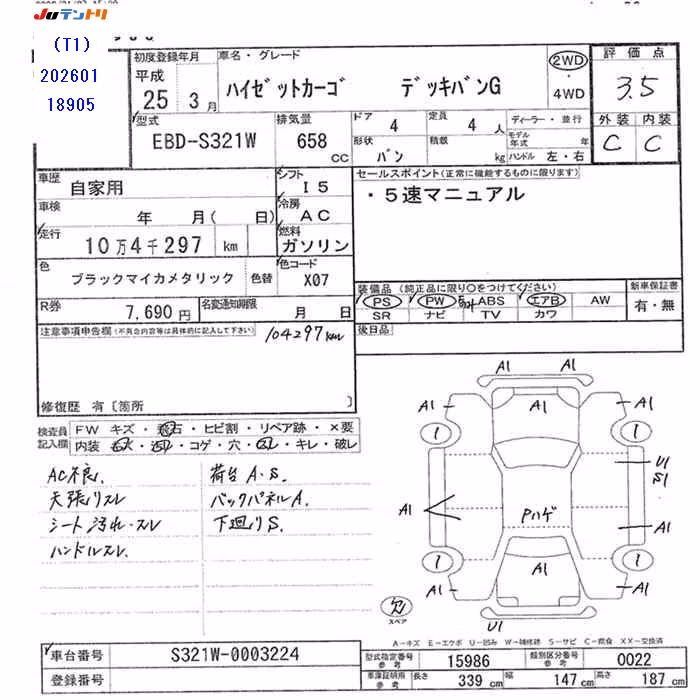 JUテントリ
(T1)
202601
18905
初度登録年月
平成
25 3 月
車名・グレード
ハイゼットカーゴ デッキバンG
2WD
・
4WD
評価点
3.5
外装 内装
C C
型式
EBD-S321W
排気量
658 CC
ドア 4
定員 4 人
形状 バン
積載 kg
ディーラー・並行
モデル年式 年
ハンドル 左・右
車歴 自家用
シフト I5
車検 年 月( 日)
冷房 AC
走行 10万4千297 km
燃料 ガソリン
色 ブラックマイカメタリック 色替
色コード X07
R券 7,690円
名変通知期限 月 日
セールスポイント(正常に機能するものに限ります)
・5速マニュアル
装備品(純正品に限り○をつけてください)
PS PW ABS エアB AW
SR ナビ TV カワ
新車保証書
有・無
後日品
注意事項申告欄(不具合内容等は具体的に記入して下さい)
104297km
修復歴 有〔箇所 〕
検査員記入欄
FW キズ・飛石・ヒビ割・リペア跡・×要
内装 ・ ・コゲ・穴・スレ・キレ・破レ
AC不良.
天張りスレ
シート汚れ・スレ
ハンドルスレ.
荷台A・S.
バックパネルA.
下廻りS.
A1
A1 A1 A1
1 1
U1
S1
A1
Pハゲ
A1
1 1
A1 A1 A1
欠
スペア
U1
A-キズ E-エクボ U-凹み W-補修跡 S-サビ C-腐食 XX-交換済
車台番号 S321W-0003224
登録番号
型式指定番号 参考 15986
類別区分番号 参考 0022
車庫証明用 参考 長さ 339 cm 幅 147 cm 高さ 187 cm